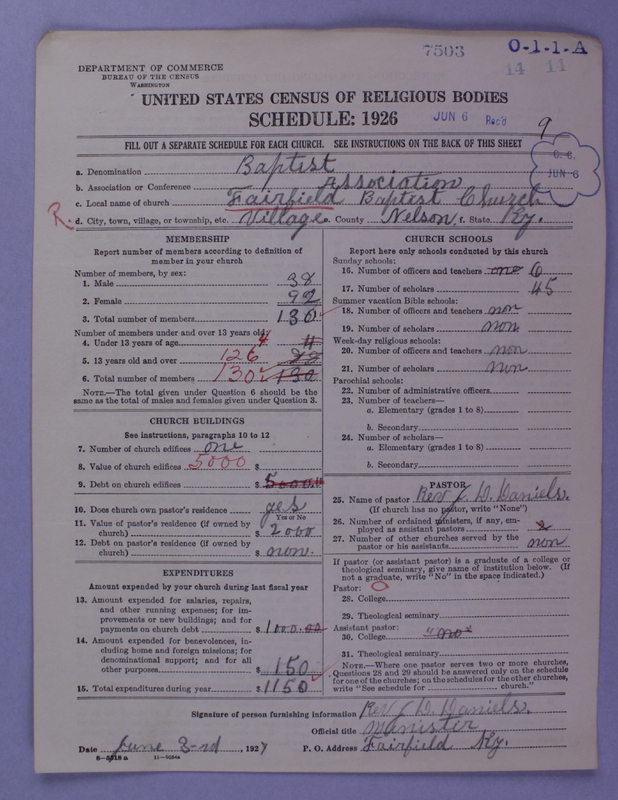 7503 O-1-1-A
14 14
DEPARTMENT OF COMMERCE
BUREAU OF THE CENSUS
WASHINGTON
UNITED STATES CENSUS OF RELIGIOUS BODIES
SCHEDULE: 1926 JUN 6 Rec'd
9
FILL OUT A SEPARATE SCHEDULE FOR EACH CHURCH. SEE INSTRUCTIONS ON THE BACK OF THIS SHEET
JUN 6
a. Denomination Baptist
b. Association or Conference Association
c. Local name of church Fairfield Baptist Church
R d. City, town, village, or township, etc. Village e. County Nelson f. State Ky.
MEMBERSHIP
Report number of members according to definition of
member in your church
Number of members, by sex:
1. Male 38
2. Female 92
3. Total number of members 130
Number of members under and over 13 years old:
4. Under 13 years of age 4
5. 13 years old and over 126
6. Total number of members 130 130
NOTE.—The total given under Question 6 should be the
same as the total of males and females given under Question 3.
CHURCH BUILDINGS
See instructions, paragraphs 10 to 12
7. Number of church edifices one
8. Value of church edifices 5000 $
9. Debt on church edifices $ 5000.
10. Does church own pastor's residence? yes
Yes or No
11. Value of pastor's residence (if owned by
church) $ 2000
12. Debt on pastor's residence (if owned by
church) $ non.
EXPENDITURES
Amount expended by your church during last fiscal year
13. Amount expended for salaries, repairs,
and other running expenses; for im-
provements or new buildings; and for
payments on church debt $ 1000.00
14. Amount expended for benevolences, in-
cluding home and foreign missions; for
denominational support; and for all
other purposes $ 150
15. Total expenditures during year $ 1150
CHURCH SCHOOLS
Report here only schools conducted by this church
Sunday schools:
16. Number of officers and teachers one 6
17. Number of scholars 45
Summer vacation Bible schools:
18. Number of officers and teachers non
19. Number of scholars non
Week-day religious schools:
20. Number of officers and teachers non
21. Number of scholars non
Parochial schools:
22. Number of administrative officers
23. Number of teachers—
a. Elementary (grades 1 to 8)
b. Secondary
24. Number of scholars—
a. Elementary (grades 1 to 8)
b. Secondary
PASTOR
25. Name of pastor Rev J. D. Daniels.
(If church has no pastor, write "None")
26. Number of ordained ministers, if any, em-
ployed as assistant pastors
27. Number of other churches served by the
pastor or his assistants non
If pastor (or assistant pastor) is a graduate of a college or
theological seminary, give name of institution below. (If
not a graduate, write "No" in the space indicated.)
Pastor:
28. College
29. Theological seminary
Assistant pastor:
30. College "no"
31. Theological seminary
NOTE.—Where one pastor serves two or more churches,
Questions 28 and 29 should be answered only on the schedule
for one of the churches; on the schedules for the other churches,
write "See schedule for church."
Signature of person furnishing information Rev J. D. Daniels.
Official title Manister
Date June 3-rd, 1927 P. O. Address Fairfield Ky.
8-5518 a 11-9664a